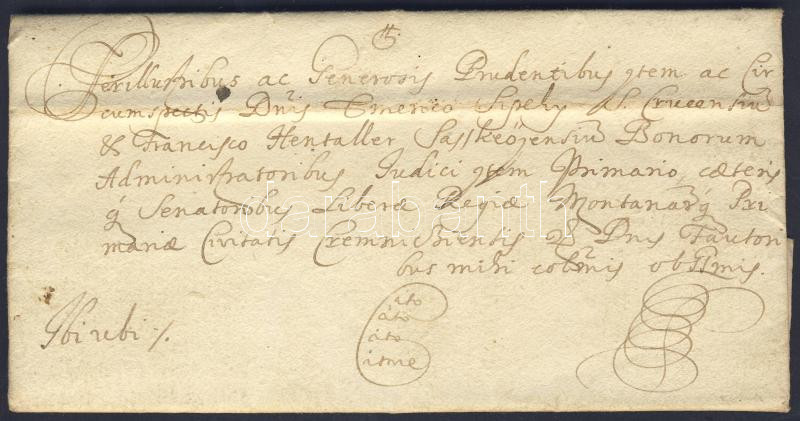 Perillustribus ac Generosis Prudentibus item ac Cir
cumspectis Dnis Emerico Sipeky S. Crucensiū
& Francisco Hentaller Sasskeöjensiū Bonorum
Administratoribus Iudici item Primario, cæteris
q́ Senatoribus Liberæ Regiæ Montanarq Pri
mariæ Civitatis Cremnicziensis & Dnis Fautori
bus mihi colsmis obssmis.
Ibi ubi ·/.
cito
cito
cito
citme
darabanth